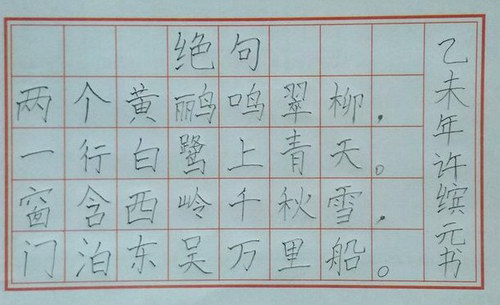 绝句
两个黄鹂鸣翠柳，
一行白鹭上青天。
窗含西岭千秋雪，
门泊东吴万里船。
乙未年许缤元书